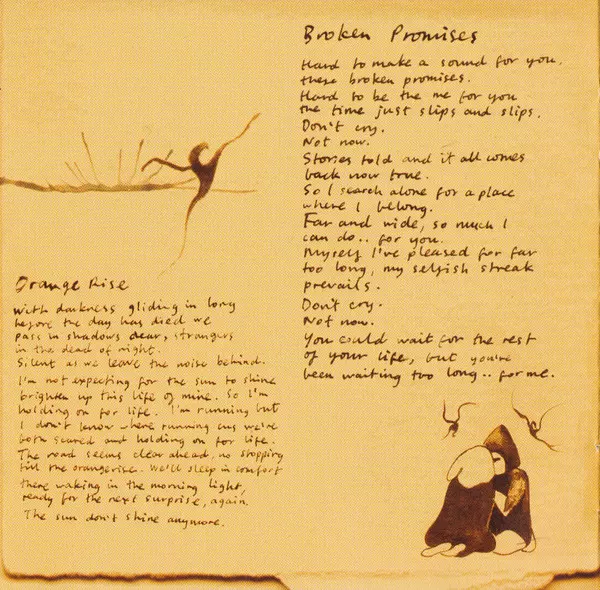 Broken Promises
Hard to make a sound for you,
these broken promises.
Hard to be the me for you
the time just slips and slips.
Don't cry.
Not now.
Stories told and it all comes
back now true.
So I search alone for a place
where I belong.
Far and wide, so much I
can do.. for you.
Myself I've pleased for far
too long, my selfish streak
prevails.
Don't cry.
Not now.
You could wait for the rest
of your life, but you're
been waiting too long.. for me.
Orange Rise
With darkness gliding in long
before the day has died we
pass in shadows dear, strangers
in the dead of night.
Silent as we leave the noise behind.
I'm not expecting for the sun to shine
brighten up this life of mine. So I'm
holding on for life. I'm running but
I don't know where running cus we're
both scared and holding on for life.
The road seems clear ahead, no stopping
till the orangerise. We'll sleep in comfort
there waking in the morning light,
ready for the next surprise, again.
The sun don't shine anymore.